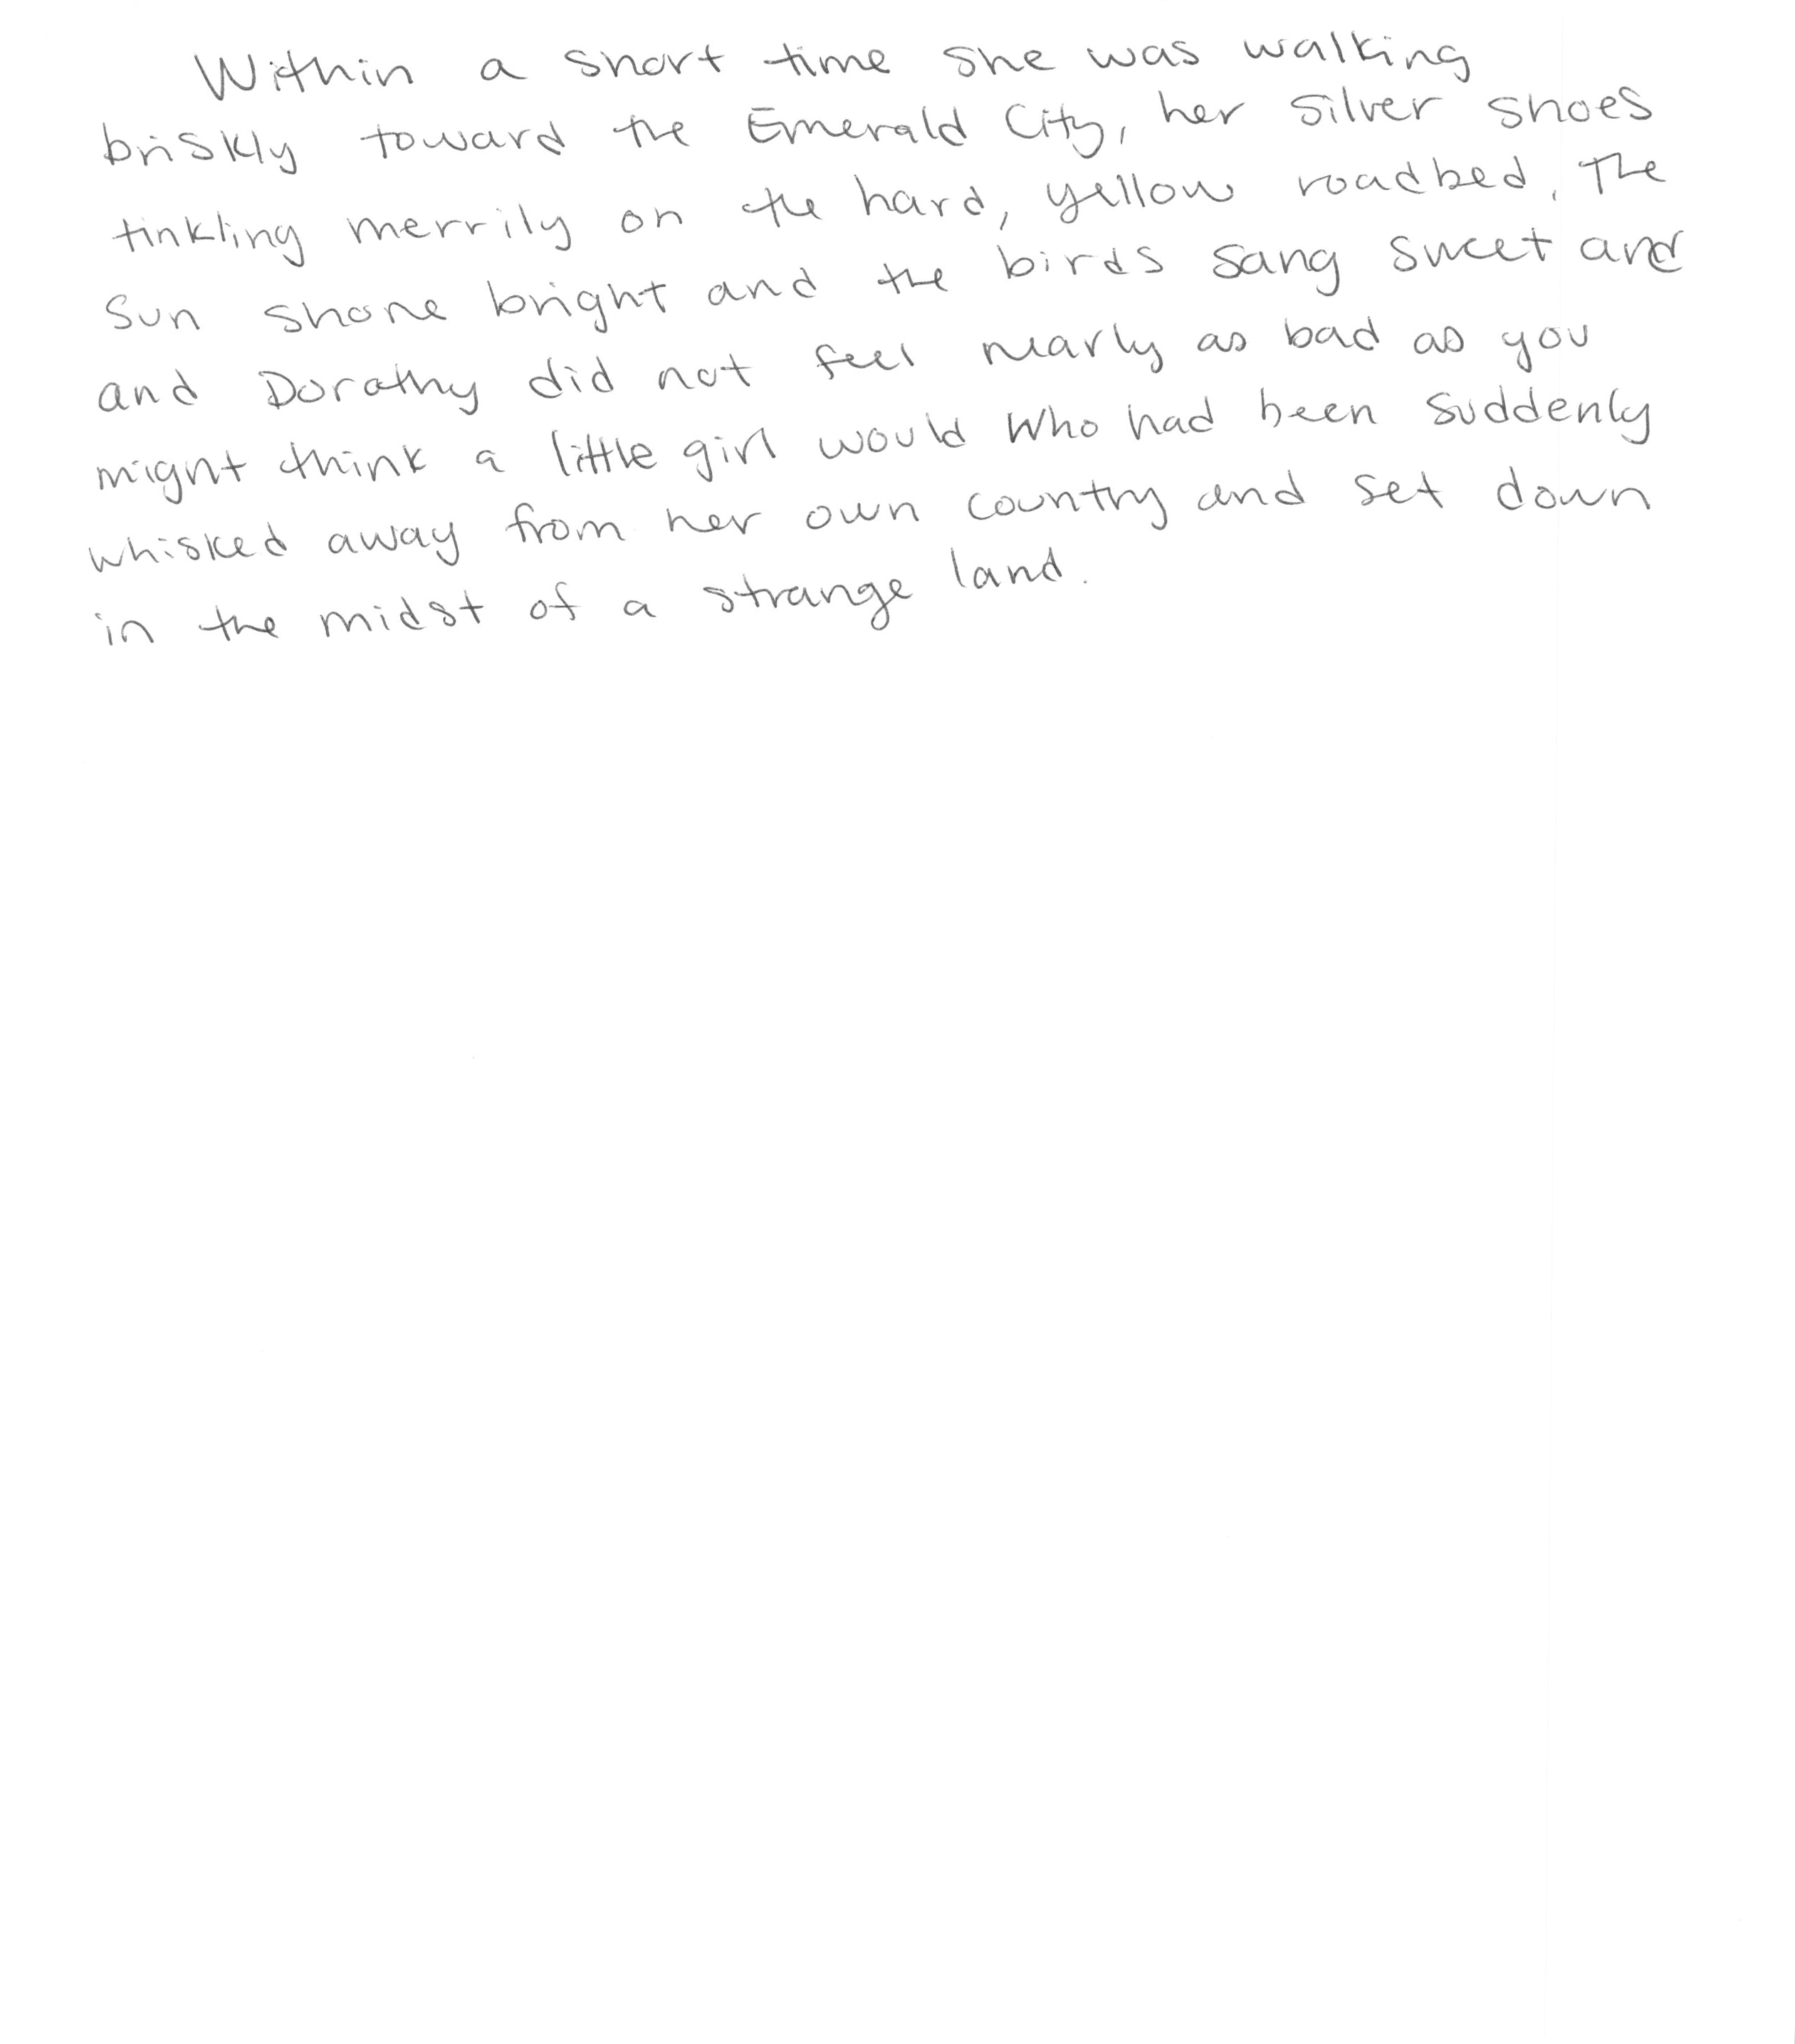 Within a short time she was walking
briskly toward the Emerald City, her silver shoes
tinkling merrily on the hard, yellow roadbed. The
sun shone bright and the birds sang sweet and
and Dorothy did not feel nearly as bad as you
might think a little girl would who had been suddenly
whisked away from her own country and set down
in the midst of a strange land.